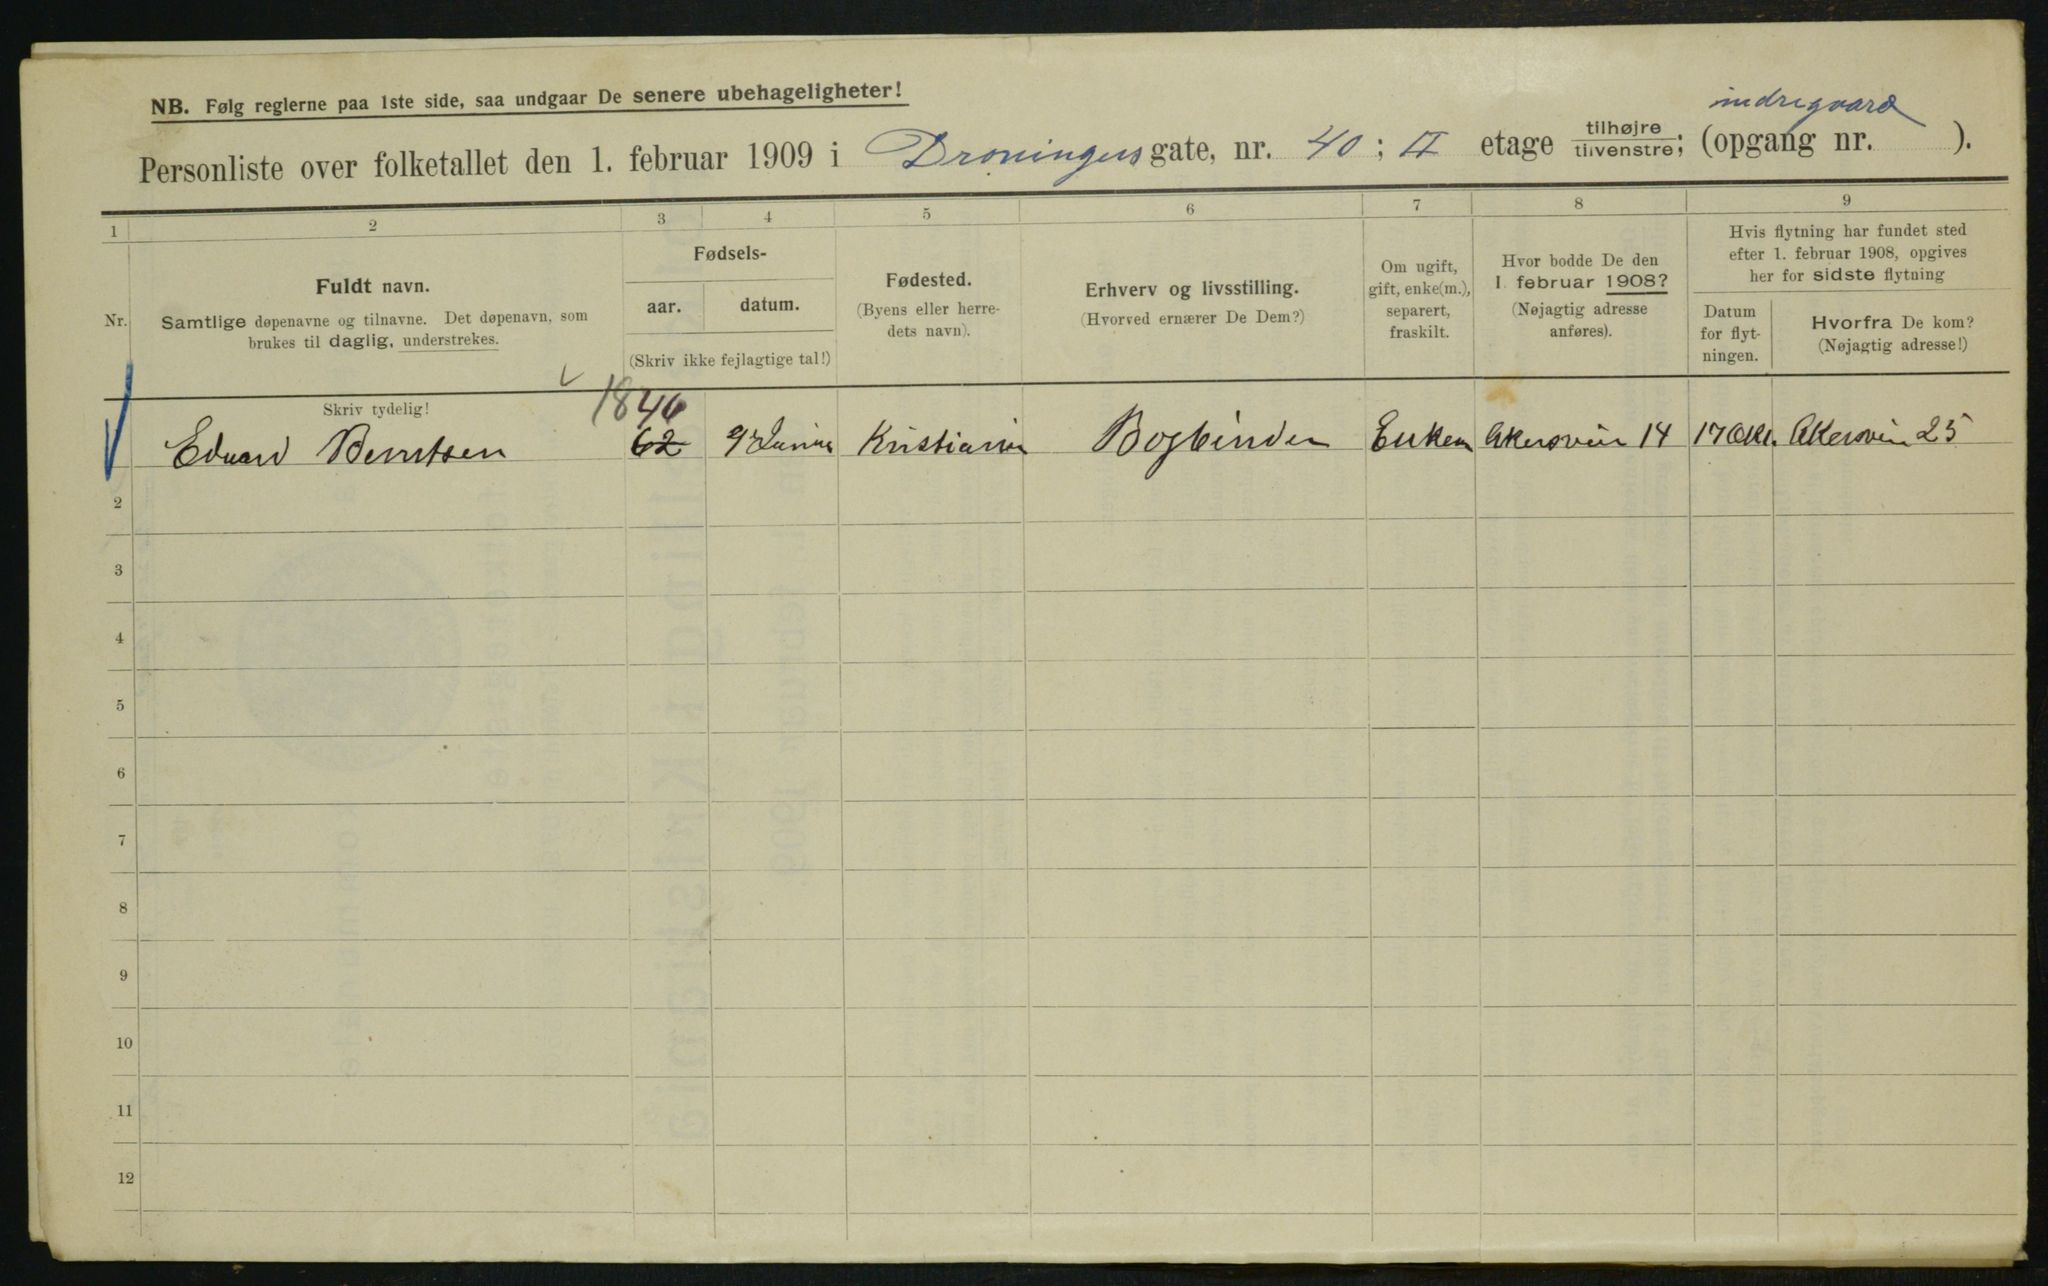 NB. Følg reglerne paa 1ste side, saa undgaar De senere ubehageligheter!
indregaard
Personliste over folketallet den 1. februar 1909 i Droningens gate, nr. 40; II etage tilhøjre tilvenstre; (opgang nr. ).
1 2 3 4 5 6 7 8 9
Nr.
Fuldt navn.
Samtlige døpenavne og tilnavne. Det døpenavn, som
brukes til daglig, understrekes.
Fødsels-
aar. datum.
(Skriv ikke fejlagtige tal!)
Fødested.
(Byens eller herre-
dets navn).
Erhverv og livsstilling.
(Hvorved ernærer De Dem?)
Om ugift,
gift, enke(m.),
separert,
fraskilt.
Hvor bodde De den
1. februar 1908?
(Nøjagtig adresse
anføres).
Hvis flytning har fundet sted
efter 1. februar 1908, opgives
her for sidste flytning
Datum
for flyt-
ningen.
Hvorfra De kom?
(Nøjagtig adresse!)
Skriv tydelig!
1840
Eduard Berntsen 62 9 Kristiania Bogbinder Enkem Akersvein 14 17 Okt. Akersvein 25
2
3
4
5
6
7
8
9
10
11
12